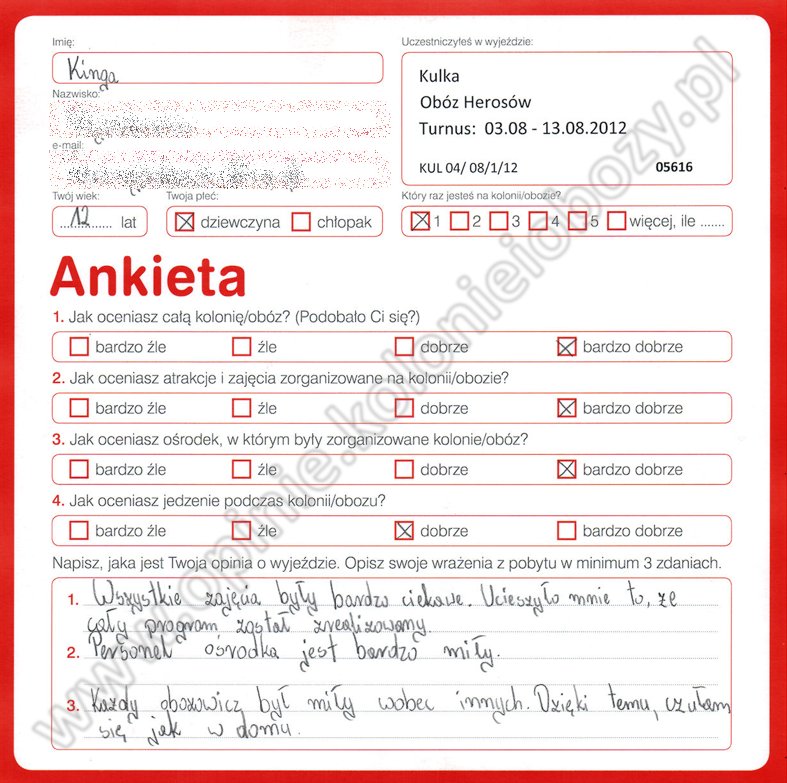 Imię:
Kinga
Nazwisko:
e-mail:
Twój wiek:
12 lat
Twoja płeć:
dziewczyna chłopak
Uczestniczyłeś w wyjeździe:
Kulka
Obóz Herosów
Turnus: 03.08 - 13.08.2012
KUL 04/ 08/1/12 05616
Który raz jesteś na kolonii/obozie?
1 2 3 4 5 więcej, ile .......
Ankieta
1. Jak oceniasz całą kolonię/obóz? (Podobało Ci się?)
bardzo źle źle dobrze bardzo dobrze
2. Jak oceniasz atrakcje i zajęcia zorganizowane na kolonii/obozie?
bardzo źle źle dobrze bardzo dobrze
3. Jak oceniasz ośrodek, w którym były zorganizowane kolonie/obóz?
bardzo źle źle dobrze bardzo dobrze
4. Jak oceniasz jedzenie podczas kolonii/obozu?
bardzo źle źle dobrze bardzo dobrze
Napisz, jaka jest Twoja opinia o wyjeździe. Opisz swoje wrażenia z pobytu w minimum 3 zdaniach.
1. Wszystkie zajęcia były bardzo ciekawe. Ucieszyło mnie to, że
cały program został zrealizowany.
2. Personel ośrodka jest bardzo miły.
3. Każdy obozowicz był miły wobec innych. Dzięki temu, czułam
się jak w domu.
www.opinie.kolonieiobozy.pl